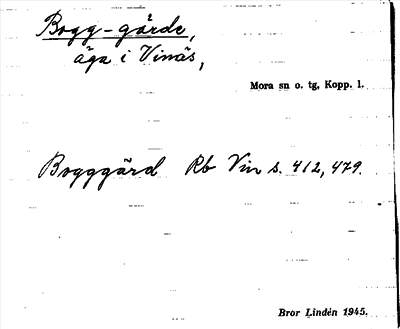 Bogg-gärde,
äga i Vinäs,
Mora sn o. tg, Kopp. l.
Bogggärd Rb Vin s. 412, 479.
Bror Lindén 1945.